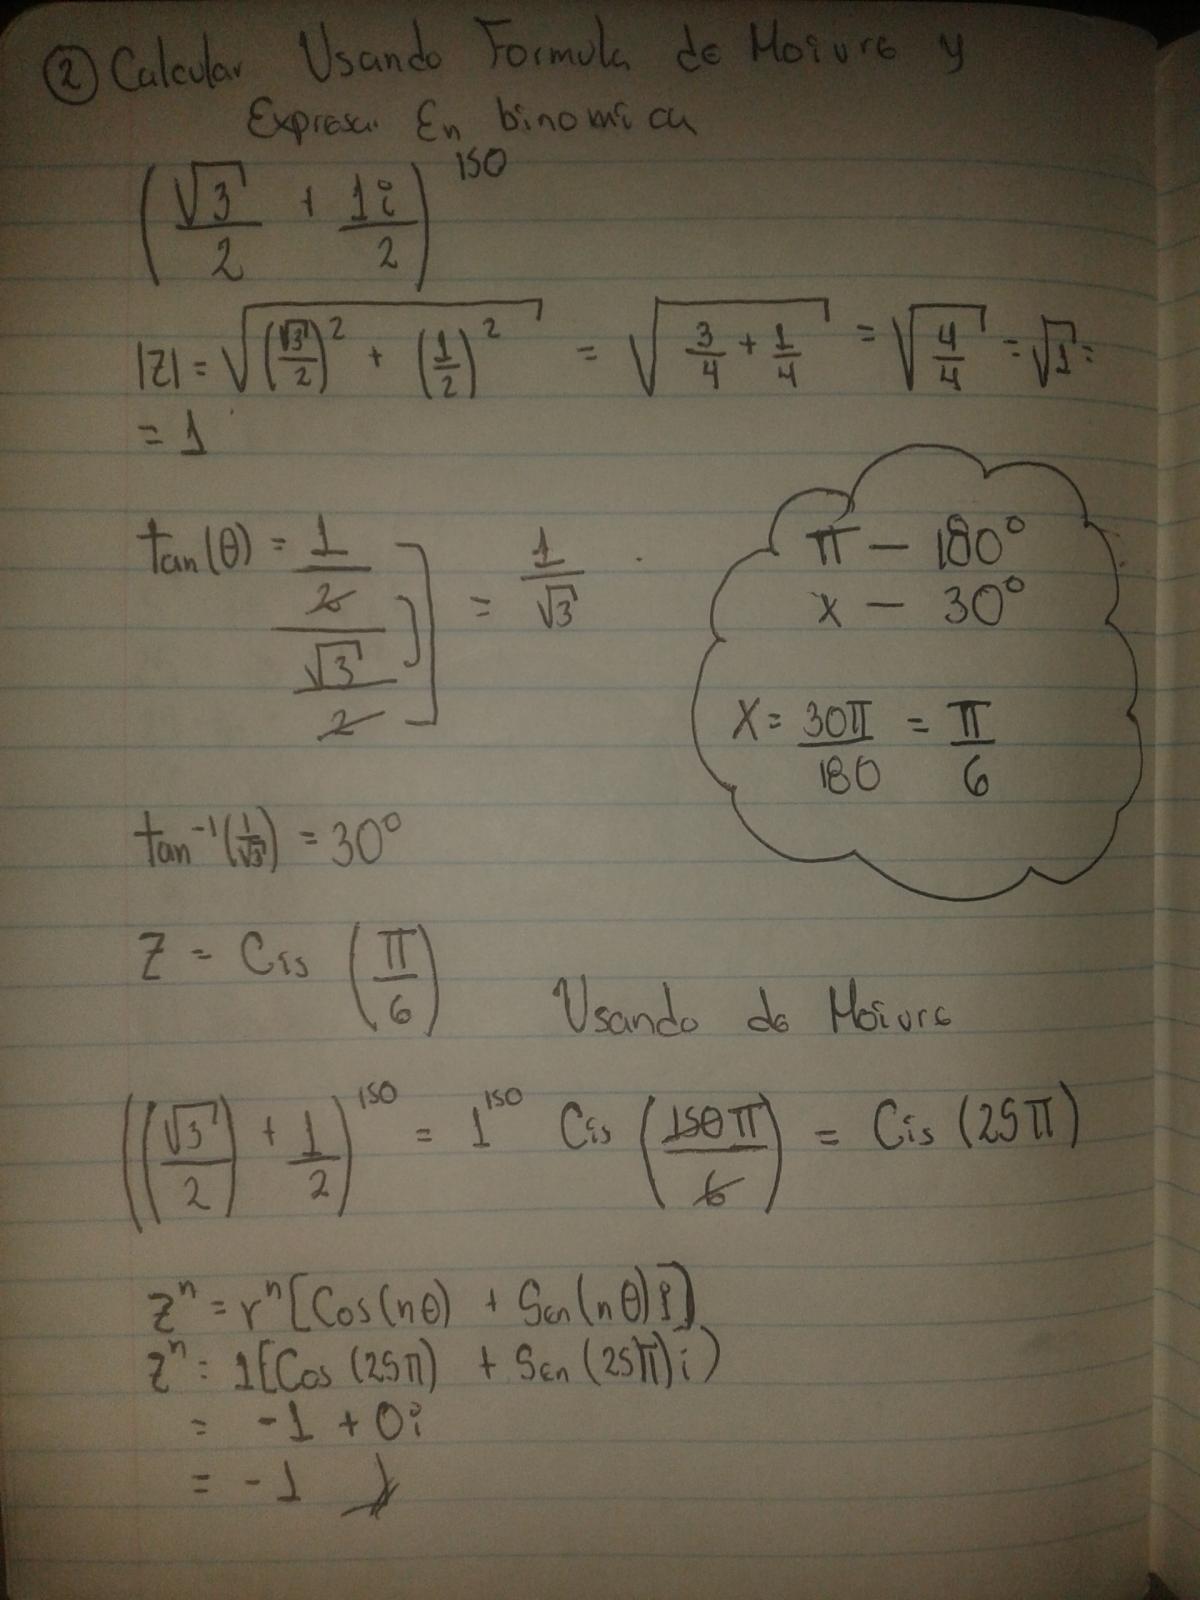 ② Calcular Usando Formula de Moivre y
Expresar En binomica
(√3/2 + 1i/2)^150
|Z| = √((√3/2)² + (1/2)²) = √(3/4 + 1/4) = √(4/4) = √1 =
= 1
tan(θ) = (1/2)/(√3/2) = 1/√3
π — 180°
x — 30°
X = 30π/180 = π/6
tan⁻¹(1/√3) = 30°
Z = Cis (π/6)
Usando de Moivre
((√3/2) + 1/2)^150 = 1^150 Cis (150π/6) = Cis (25π)
Zⁿ = rⁿ[Cos(nθ) + Sen(nθ)i]
Zⁿ = 1[Cos (25π) + Sen (25π)i)
= -1 + 0i
= -1